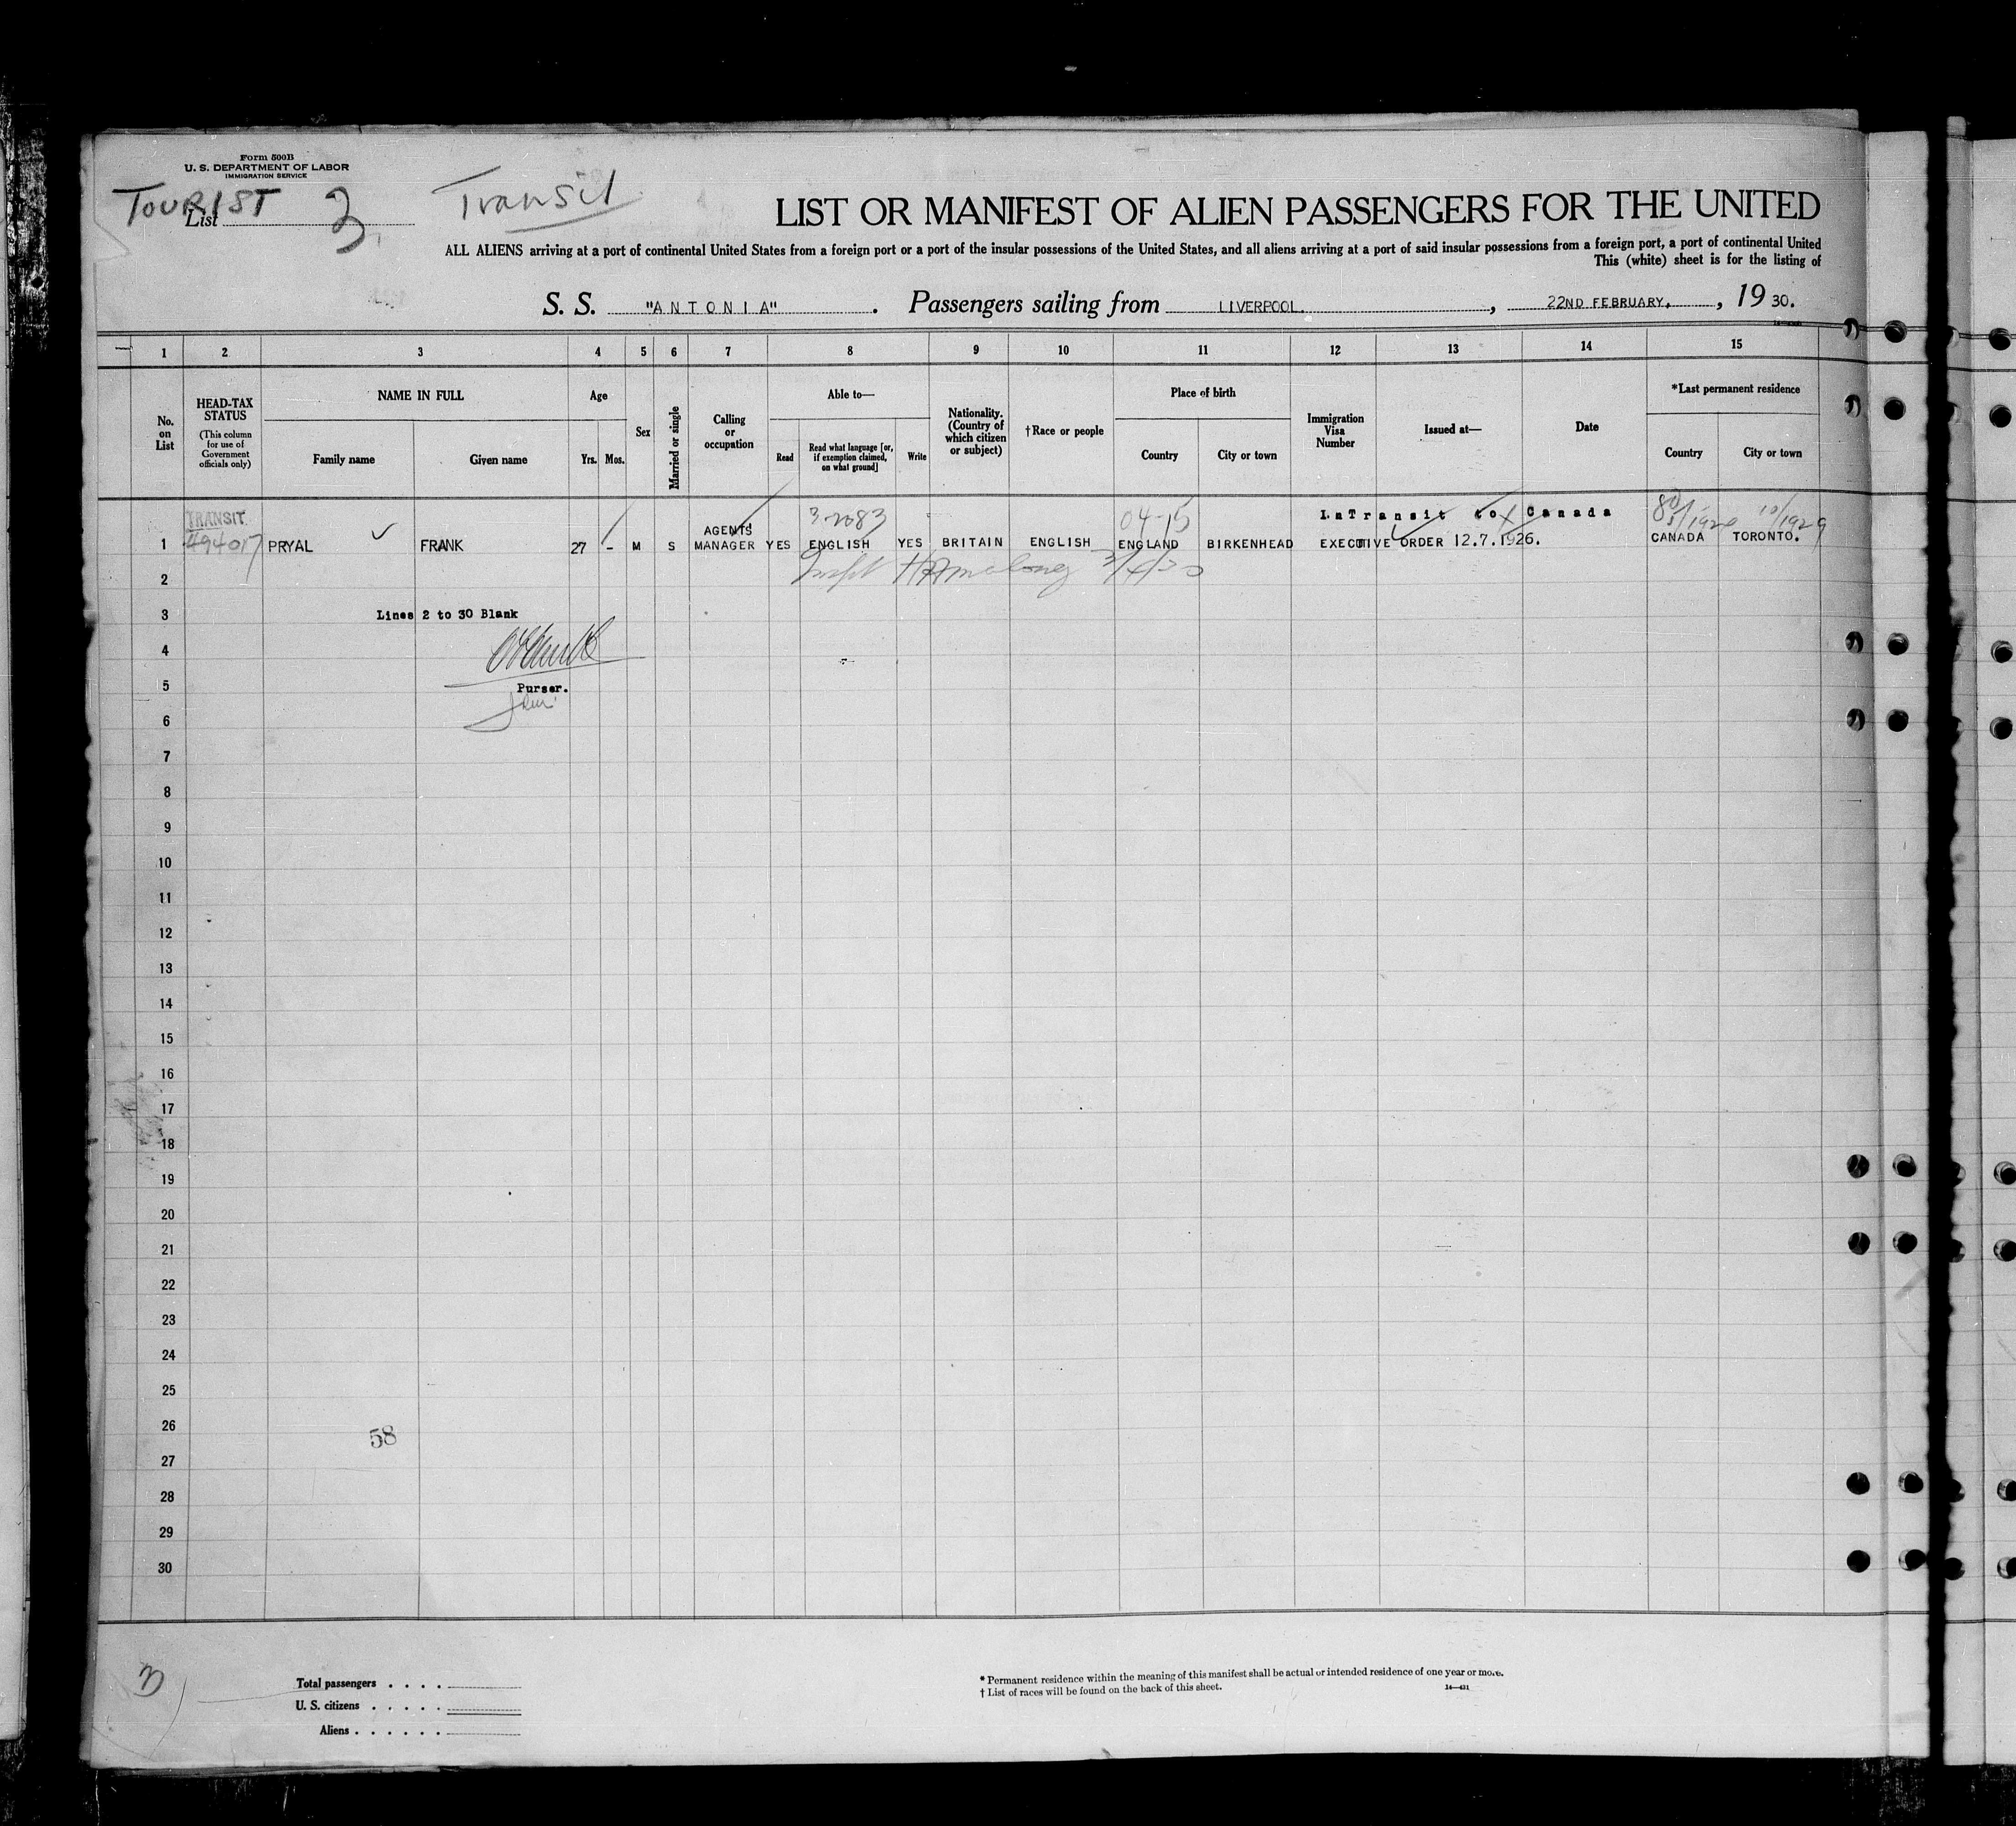 Form 500B
U. S. DEPARTMENT OF LABOR
IMMIGRATION SERVICE
TOURIST
List
Transit
LIST OR MANIFEST OF ALIEN PASSENGERS FOR THE UNITED
ALL ALIENS arriving at a port of continental United States from a foreign port or a port of the insular possessions of the United States, and all aliens arriving at a port of said insular possessions from a foreign port, a port of continental United
This (white) sheet is for the listing of
S. S. "ANTONIA". Passengers sailing from LIVERPOOL., 22ND FEBRUARY., 1930.
1 2 3 4 5 6 7 8 9 10 11 12 13 14 15
No. on List
HEAD-TAX STATUS
(This column for use of Government officials only)
NAME IN FULL
Family name
Given name
Age
Yrs. Mos.
Sex
Married or single
Calling or occupation
Able to—
Read
Read what language [or, if exemption claimed, on what ground]
Write
Nationality. (Country of which citizen or subject)
†Race or people
Place of birth
Country
City or town
Immigration Visa Number
Issued at—
Date
*Last permanent residence
Country
City or town
TRANSIT
AGENTS
04-15
InTransit to Canada
10/1929
1 494017 PRYAL FRANK 27 - M S MANAGER YES ENGLISH YES BRITAIN ENGLISH ENGLAND BIRKENHEAD EXECUTIVE ORDER 12.7.1926. CANADA TORONTO.
2
3 Lines 2 to 30 Blank
4
5 Purser.
6
7
8
9
10
11
12
13
14
15
16
17
18
19
20
21
22
23
24
25
26 58
27
28
29
30
Total passengers . . . .
U. S. citizens . . . . .
Aliens . . . . . .
* Permanent residence within the meaning of this manifest shall be actual or intended residence of one year or more.
† List of races will be found on the back of this sheet.
14—431